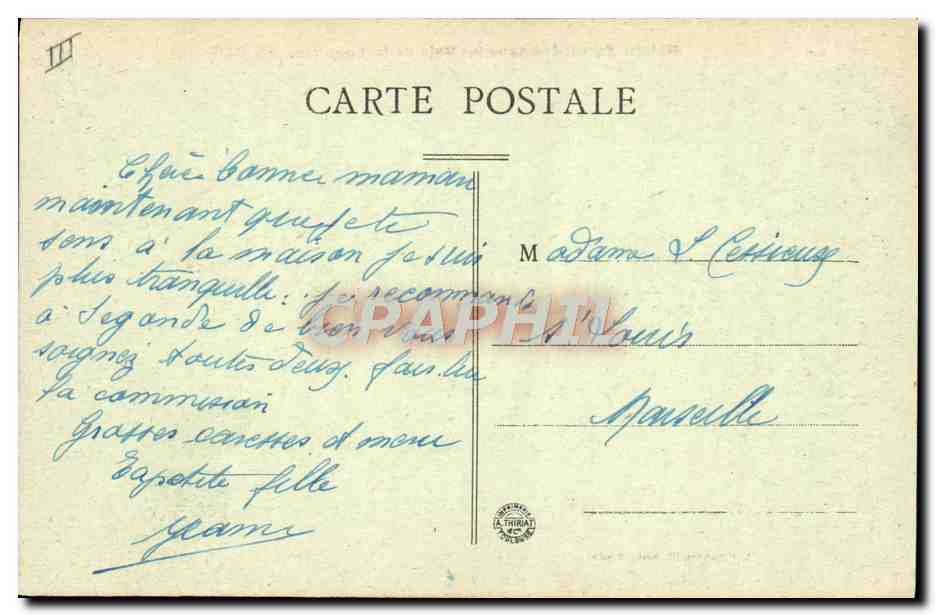 III
CARTE POSTALE
Chère bonne maman
maintenant que je te
sens à la maison je suis
plus tranquille. je recommande
à Segonde de bien vous
soignez toutes deux. fais lui
la commission
Grosses caresses et merci
Ta petite fille
Madame Cessieux
St Louis
Marseille
CPAPHIL
IMPRIMERIE
A. THIRIAT
TOULOUSE